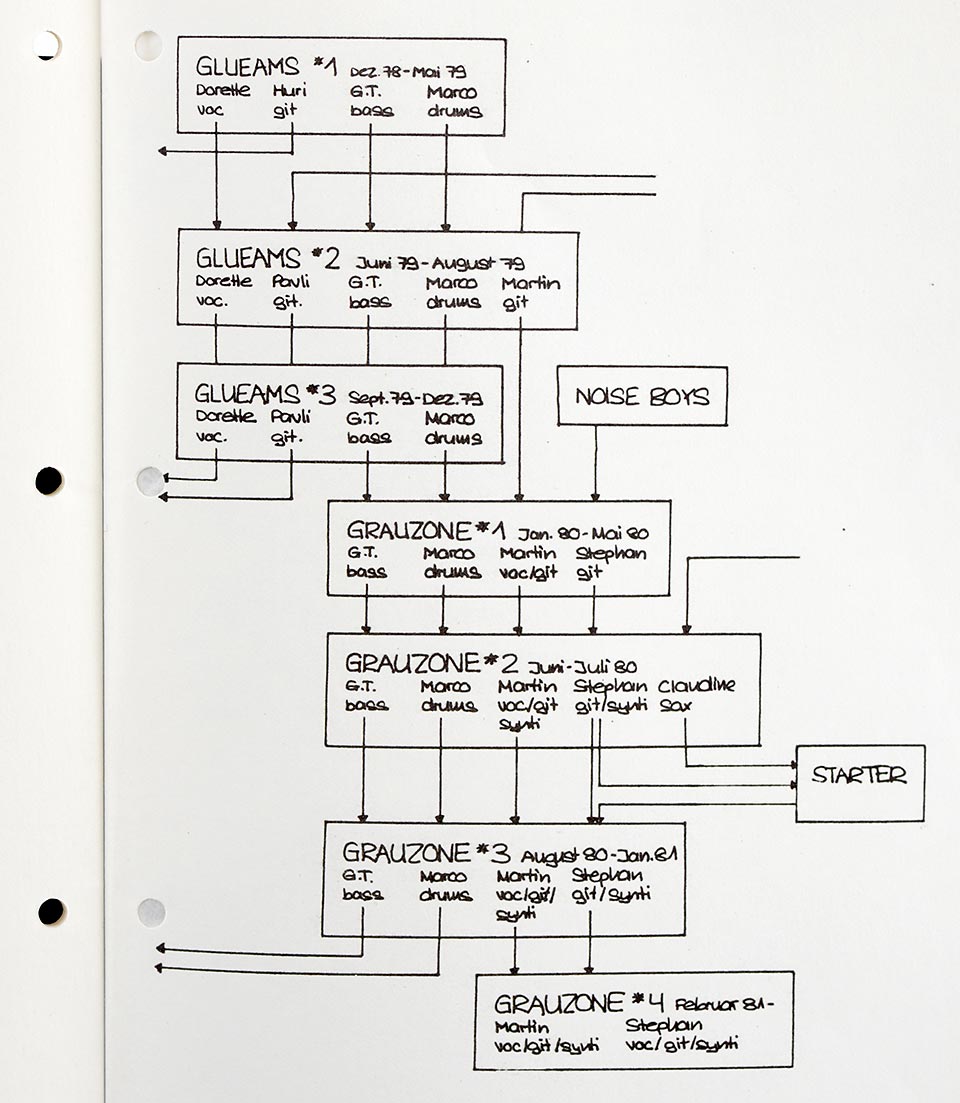 GLUEAMS *1 Dez. 78 - Mai 79
Dorette Huri G.T. Marco
voc git bass drums
GLUEAMS *2 Juni 79 - August 79
Dorette Pauli G.T. Marco Martin
voc. git. bass drums git
GLUEAMS *3 Sept. 79 - Dez. 79
Dorette Pauli G.T. Marco
voc. git. bass drums
NOISE BOYS
GRAUZONE *1 Jan. 80 - Mai 80
G.T. Marco Martin Stephan
bass drums voc/git git
GRAUZONE *2 Juni - Juli 80
G.T. Marco Martin Stephan Claudine
bass drums voc/git git/synti sax
synti
STARTER
GRAUZONE *3 August 80 - Jan. 81
G.T. Marco Martin Stephan
bass drums voc/git/ git/synti
synti
GRAUZONE *4 Februar 81 -
Martin Stephan
voc/git/synti voc/git/synti